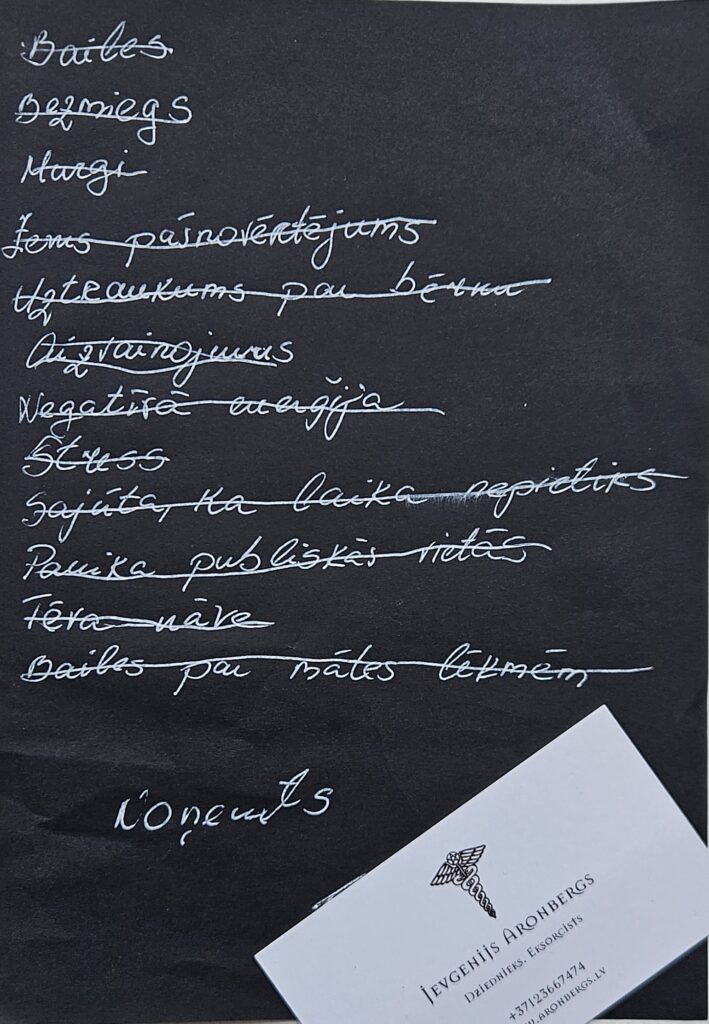 Bailes
Bezmiegs
Murgi
Zems pašnovērtējums
Uztraukums par bērnu
Aizvainojums
Negatīvā enerģija
Stress
Sajūta, ka laika nepietiks
Panika publiskās vietās
Tēva nāve
Bailes par mātes lēkmēm
Noņemts
Jevgenijs Aronbergs
Dziednieks. Eksorcists
+37123667474
w.aronbergs.lv